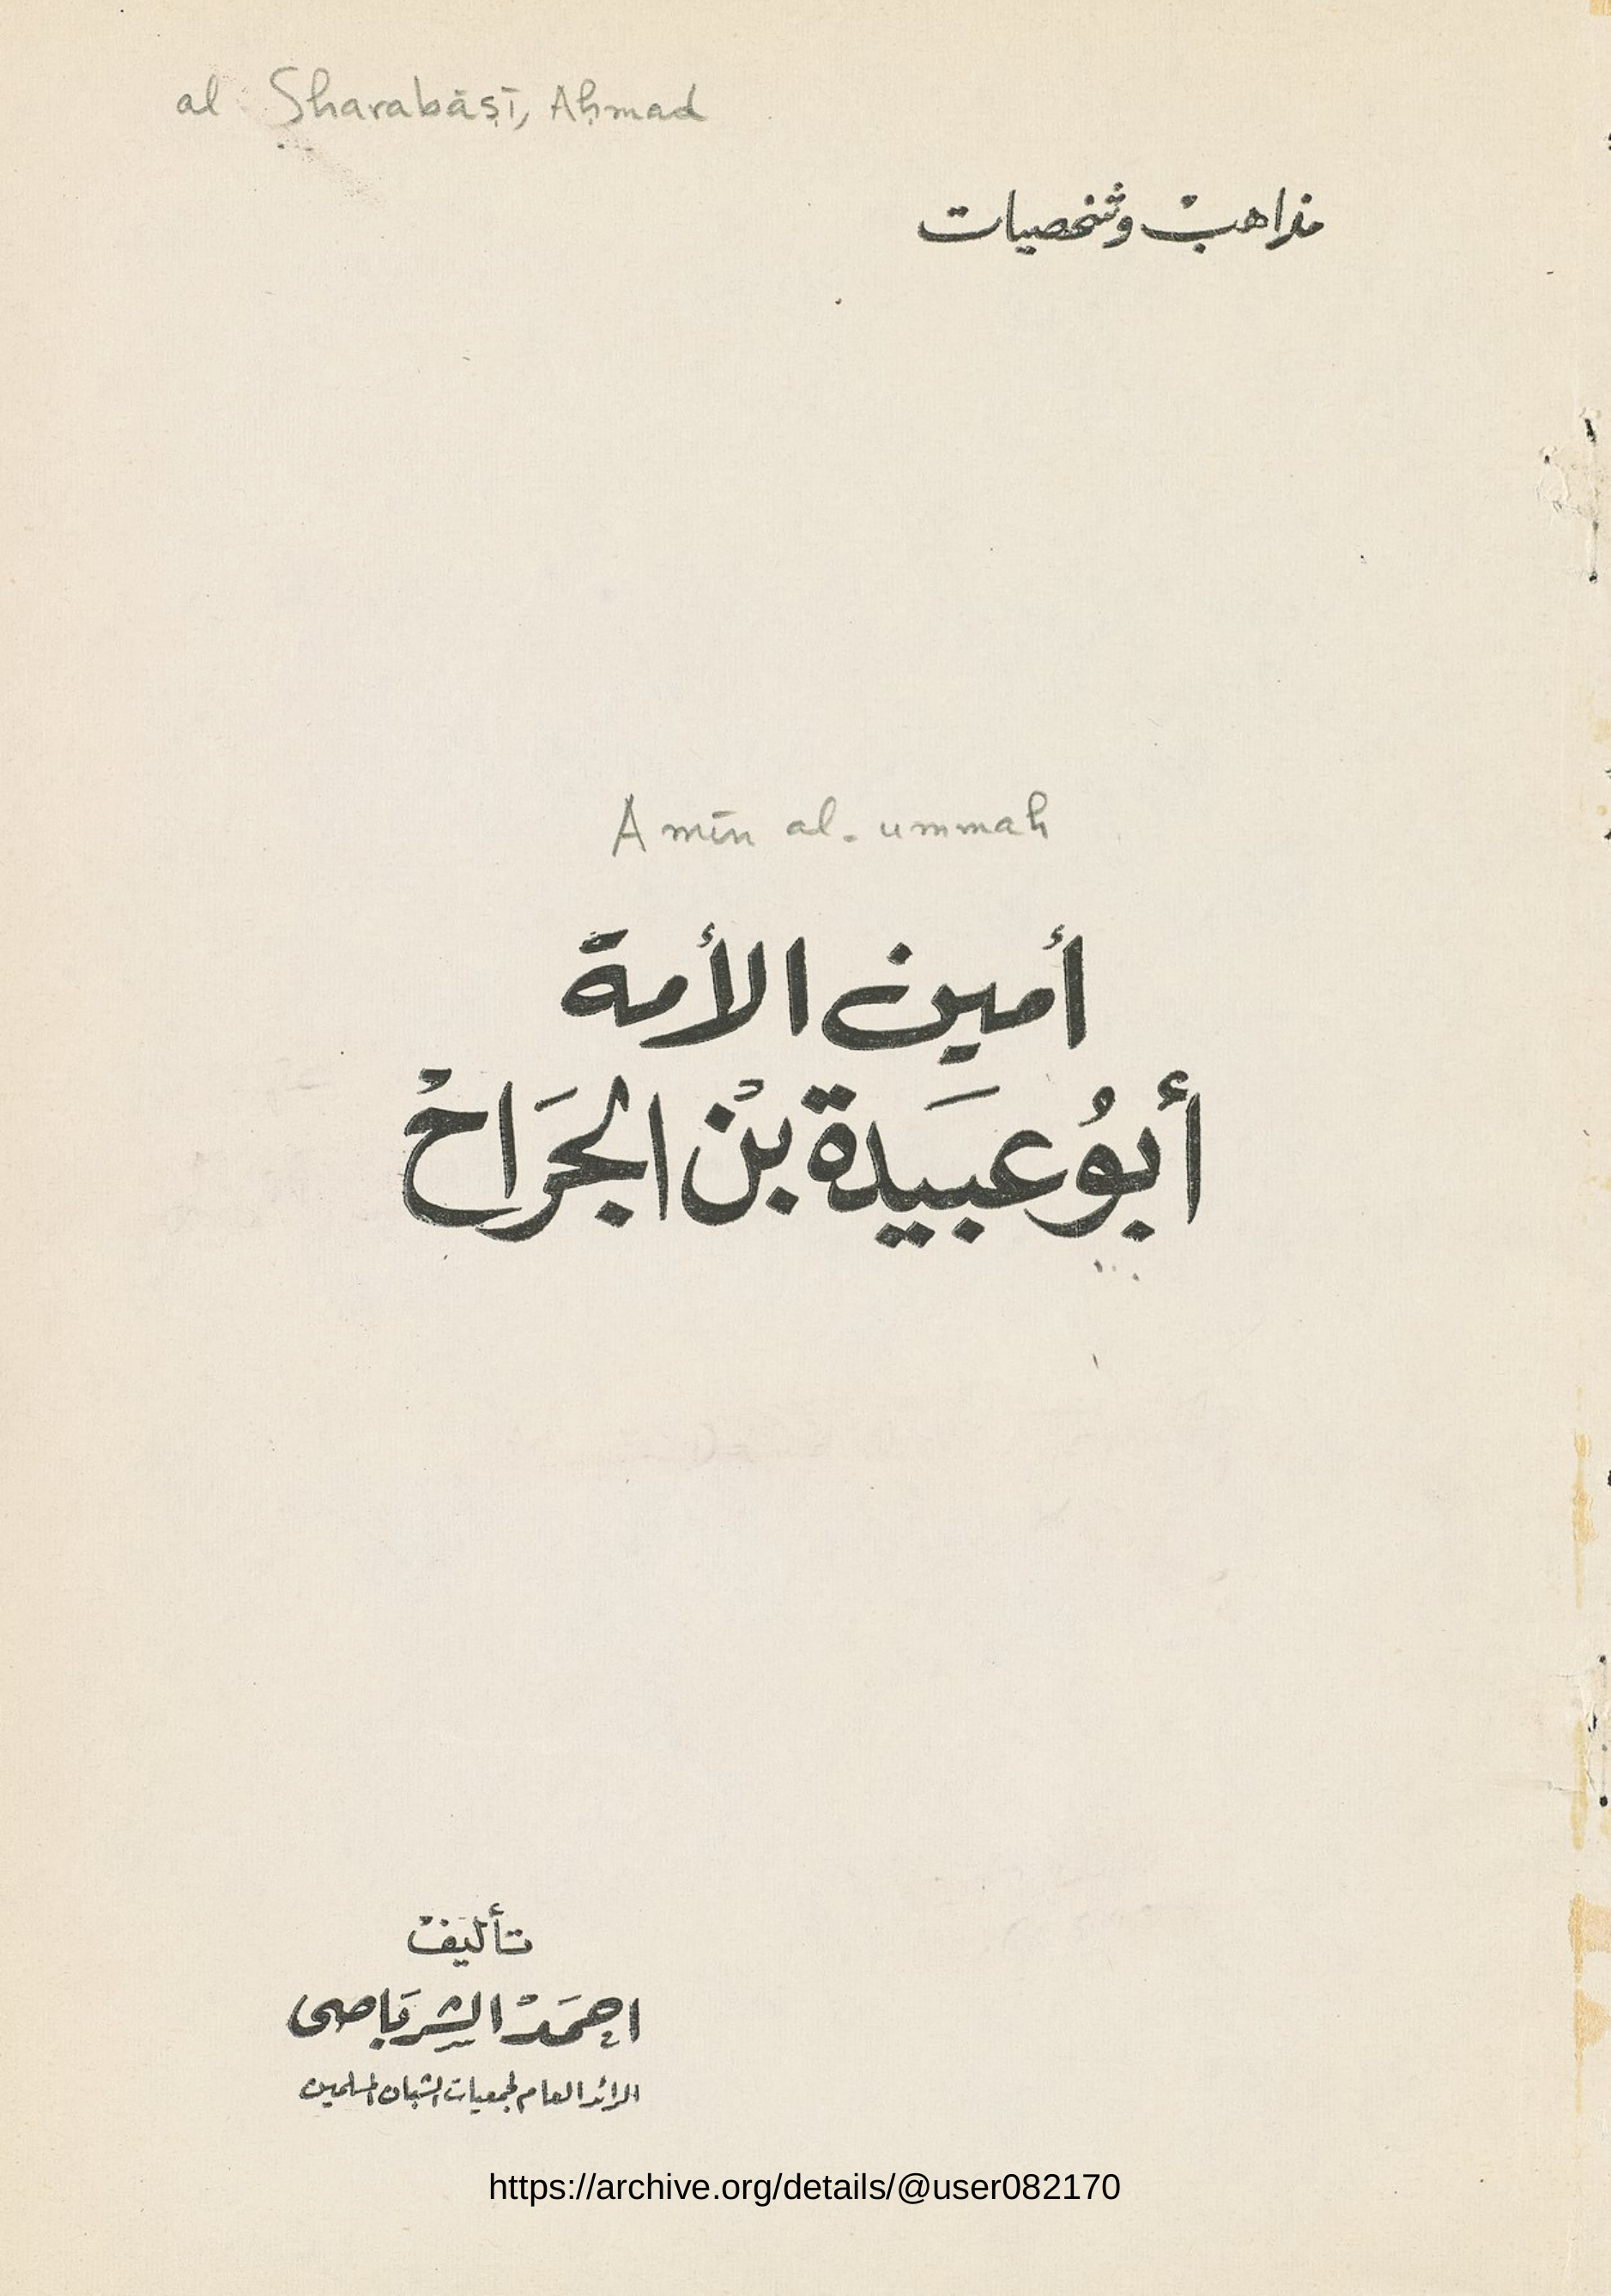 al Sharabāṣī, Aḥmad
مذاهب وشخصيات
Amīn al-ummah
أمين الأمة
أبُو عبَيدة بنْ الجَراح
تأليف
احمَد الشرَباصى
الرائد العام لجمعيات الشبان المسلمين
https://archive.org/details/@user082170